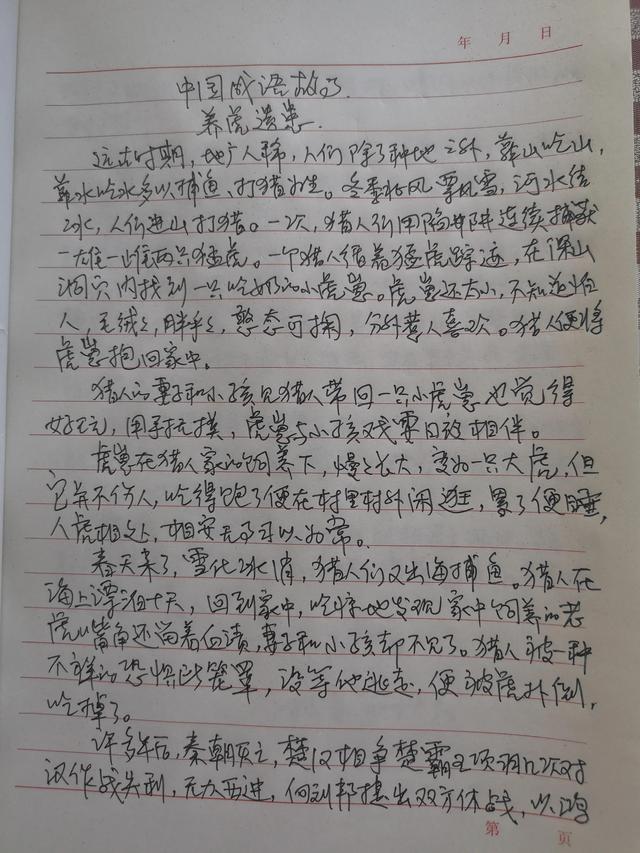 年 月 日
中国成语故事
养虎遗患
远古时期，地广人稀，人们除了种地之外，靠山吃山，
靠水吃水多以捕鱼、打猎为生。冬季北风飘风雪，河水结
冰，人们进山打猎。一次，猎人们用陷井阱连续捕获
一雄一雌两只猛虎。一个猎人循着猛虎踪迹，在深山
洞穴内找到一只吃奶的小虎崽。虎崽还太小，不知道怕
人，毛绒々，胖乎々，憨态可掬，分外惹人喜欢。猎人便将
虎崽抱回家中。
猎人的妻子和小孩见猎人带回一只小虎崽也觉得
好玩，用手抚摸，虎崽与小孩戏耍日夜相伴。
虎崽在猎人家的饲养下，慢々长大，变为一只大虎，但
它并不伤人，吃得饱了便在村里村外闲逛，累了便睡，
人虎相处，相安无事习以为常。
春天来了，雪化冰消，猎人们又出海捕鱼。猎人在
海上漂泊十天，回到家中，吃惊地发现家中饲养的老
虎嘴角还留着血渍，妻子和小孩却不见了。猎人被一种
不祥的恐惧所笼罩，没等他逃走，便被虎扑倒，
吃掉了。
许多年后，秦朝灭亡，楚汉相争楚霸王项羽几次对
汉作战失利，无力西进，向刘邦提出双方休战，以鸿
第 页